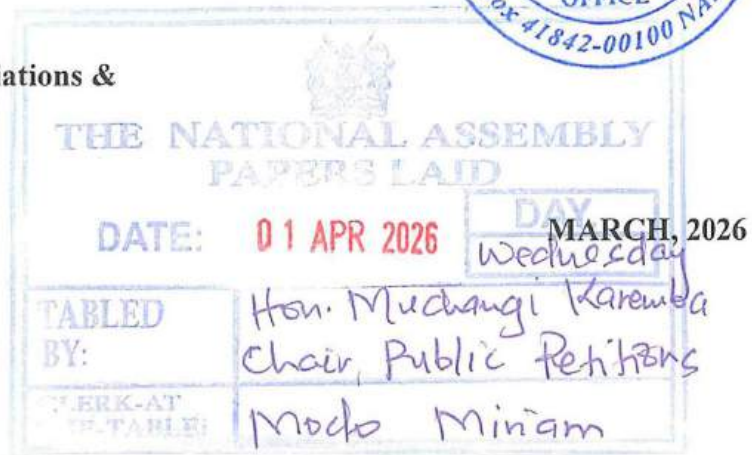 OFFICE
ox 41842-00100 NA
lations &
THE NATIONAL ASSEMBLY
PAPERS LAID
DATE: 01 APR 2026 DAY
MARCH, 2026
Wednesday
TABLED BY: Hon. Muchangi Karemba
Chair, Public Petitions
CLERK-AT THE-TABLE: Miriam